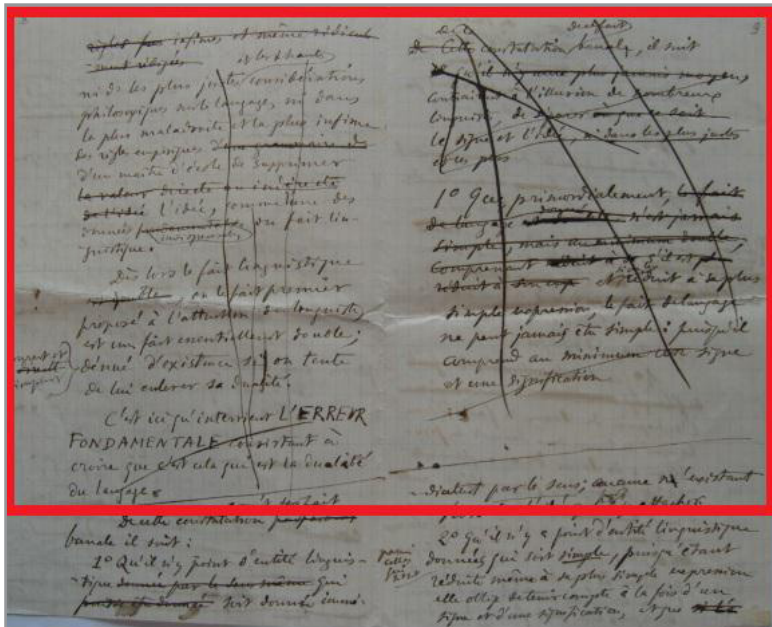 règles plus infimes et même ridicule-
ment rédigées
ni de les plus justes considérations
philosophiques sur le langage, ni dans
la plus maladroite et la plus infime
des règles empiriques d'une grammaire de
d'un maître d'école de supprimer
la valeur directe ou indirecte
de l'idée l'idée, comme l'une des
données fondamentales du fait lin-
guistique.
Dès lors le fait linguistique
ou le fait premier
proposé à l'attention du linguiste
est un fait essentiellement double;
dénué d'existence si on tente
de lui enlever sa dualité.
C'est ici qu'intervient L'ERREUR
FONDAMENTALE consistant à
croire que c'est cela qui est la dualité
du langage.
De cette constatation
banale il suit:
1° Qu'il n'y point d'entité linguis-
tique donnée par le sens même qui
soit donnée immé-
9
De cette constatation banale, il suit
qu'il n'y aura plus jamais moyen,
contrairement à l'illusion de nombreux
linguistes, de séparer
le signe et l'idée, ni dans les plus justes
et les plus
1° Que primordialement, le fait
de langage n'est jamais
simple, mais au minimum double,
comprenant
et réduit à sa plus
simple expression, le fait de langage
ne peut jamais être simple: puisqu'il
comprend au minimum un signe
et une signification
-diatement par le sens; aucune n'existant
2° Qu'il n'y a point d'entité linguistique
parmi celles
données qui soit simple, puisque étant
réduite même à sa plus simple expression
elle oblige de tenir compte à la fois d'un
signe et d'une signification, et que